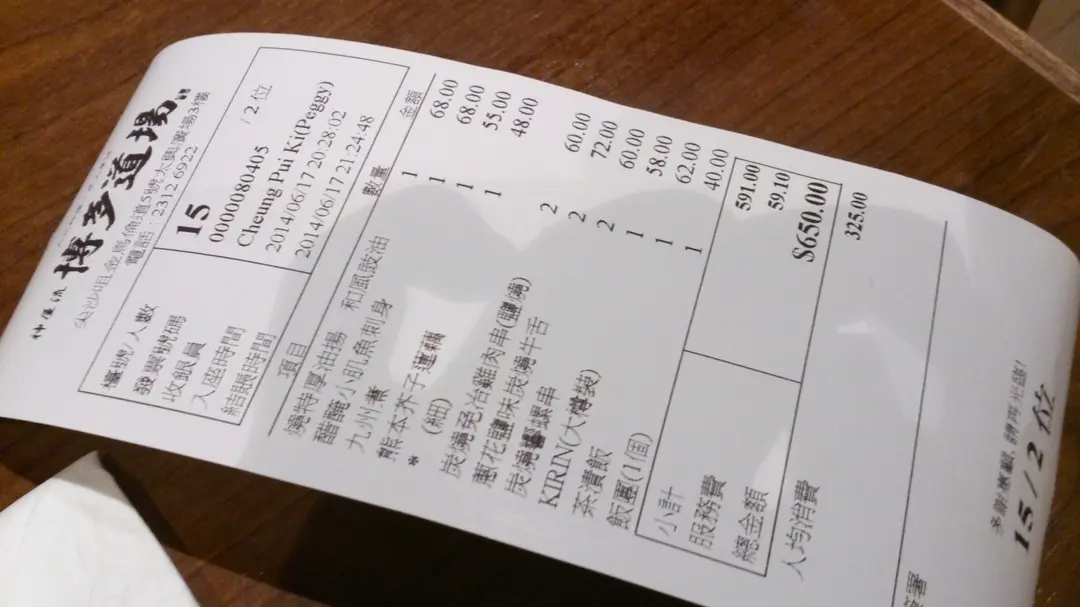 神屋流 博多道場
尖沙咀金馬倫道5號太興廣場3樓
電話：2312 6922
檯號/人數 15 /2 位
發票號碼 0000080405
收銀員 Cheung Pui Ki(Peggy)
入座時間 2014/06/17 20:28:02
結賬時間 2014/06/17 21:24:48
項目 數量 金額
燒特厚油揚 和風豉油 1 68.00
醋醃小肌魚刺身 1 68.00
九州煮 1 55.00
熊本芥子蓮藕 1 48.00
* (細)
炭燒柔冶雞肉串(鹽燒) 2 60.00
蔥花鹽味炭燒牛舌 2 72.00
炭燒串 2 60.00
KIRIN(大樽裝) 1 58.00
茶漬飯 1 62.00
飯團(1個) 1 40.00
小計 591.00
服務費 59.10
總金額 $650.00
人均消費 325.00
多謝惠顧, 請再光臨!
15 / 2 位